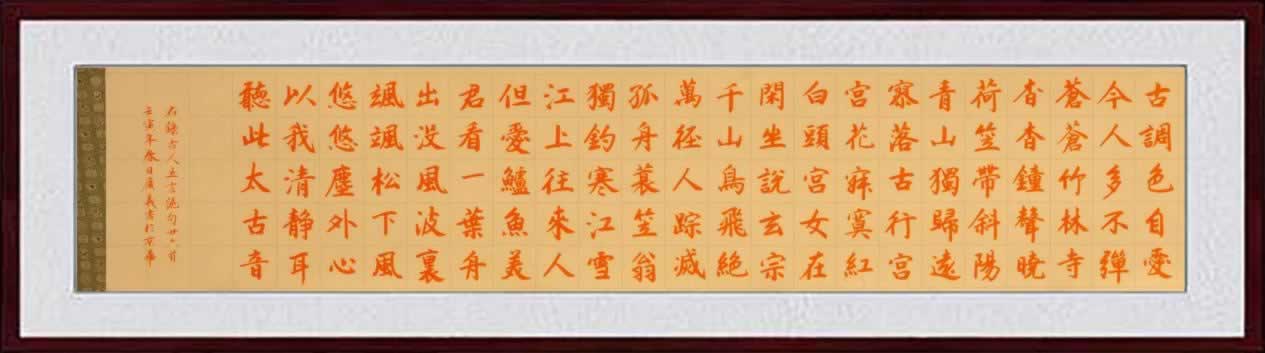 古調色自愛
今人多不彈
蒼蒼竹林寺
杳杳鐘聲曉
荷笠帶斜陽
青山獨歸遠
寥落古行宮
宮花寂寞紅
白頭宮女在
閑坐說玄宗
千山鳥飛絕
萬径人踪滅
孤舟蓑笠翁
獨釣寒江雪
江上往來人
但愛鱸魚美
君看一葉舟
出沒風波裏
颯颯松下風
悠悠塵外心
以我清静耳
聽此太古音
右錄古人五言絕句首
壬寅年春日廣義書於京華